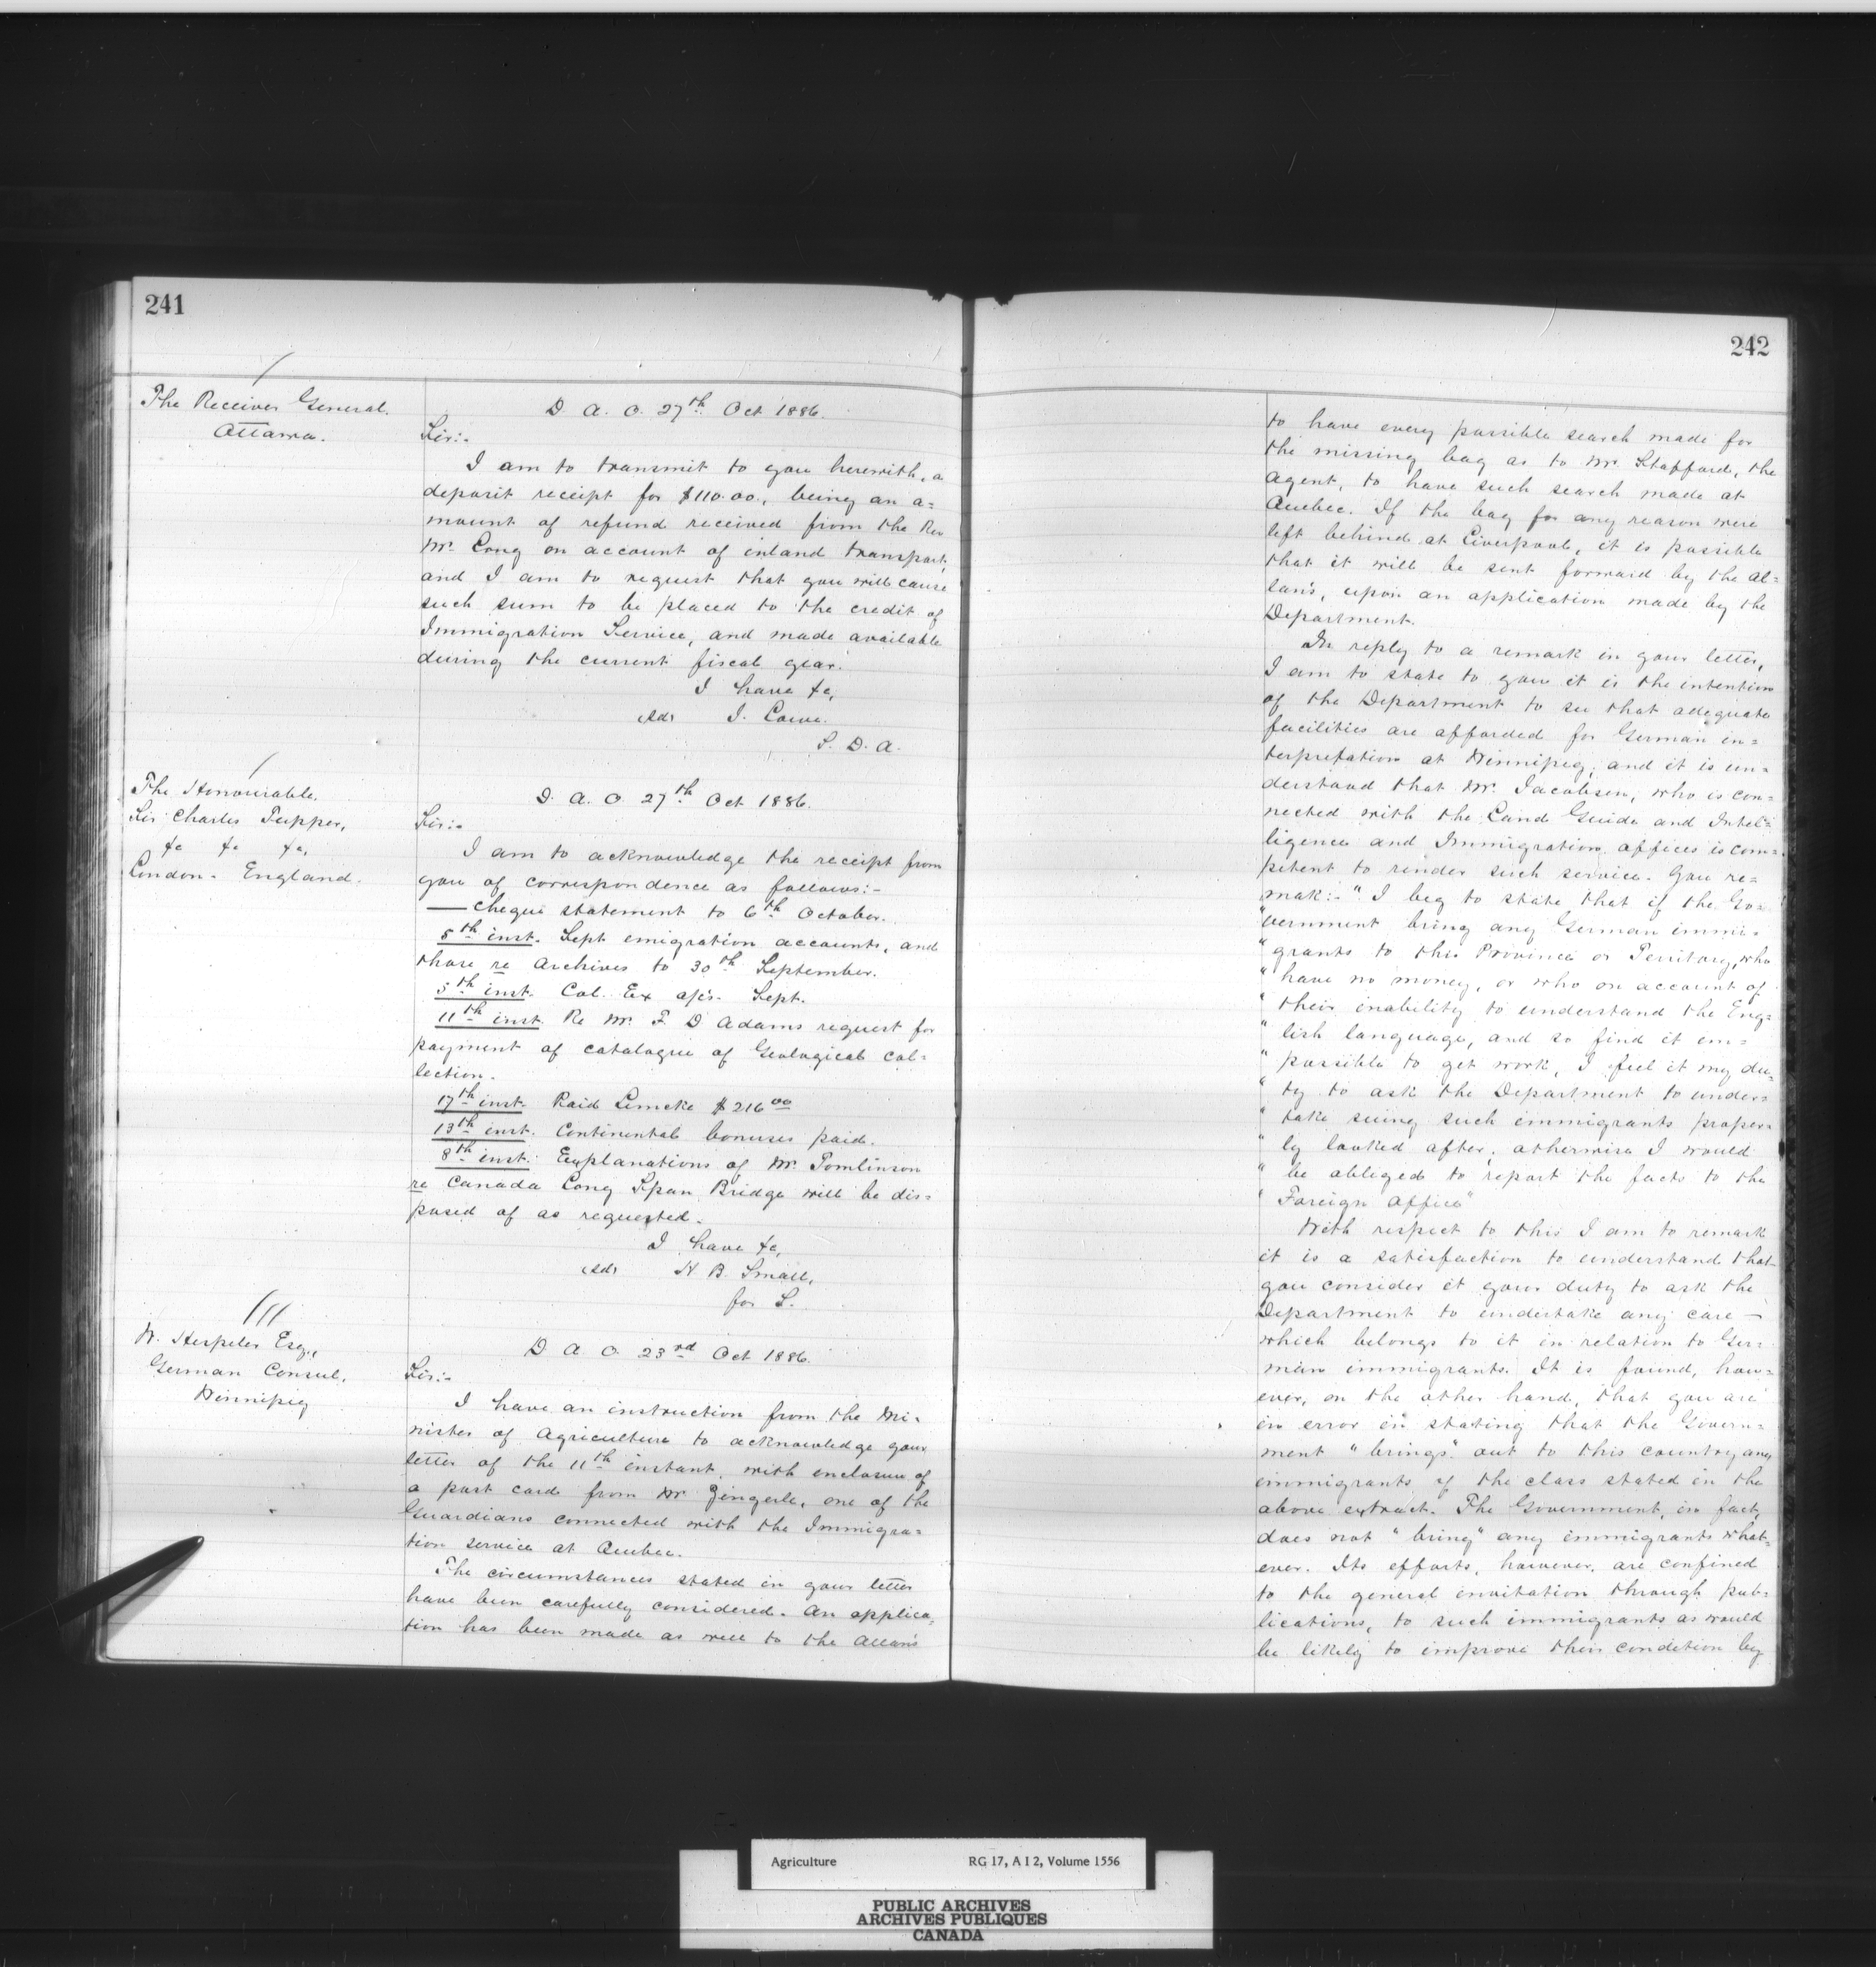 241
The Receiver General.
Ottawa.
D. A. O. 27th Oct 1886.
Sir:-
I am to transmit to you herewith, a
deposit receipt for $110.00., being an a=
mount of refund received from the Rev
Mr. Long on account of inland transport,
and I am to request that you will cause
such sum to be placed to the credit of
Immigration Service, and made available
during the current fiscal year.
I have &c,
(sd) J. Lowe.
S. D. A.
The Honourable.
Sir Charles Tupper,
&c &c &c,
London - England.
D. A. O. 27th Oct 1886.
Sir:-
I am to acknowledge the receipt from
you of correspondence as follows:-
— cheque statement to 6th October.
5th inst. Sept emigration accounts, and
those re Archives to 30th September.
5th inst. Col. Ex a/cs. Sept.
11th inst. Re Mr. F. D Adams request for
payment of catalogue of Geological col=
lection.
17th inst. Paid Lemcke $216 00
13th inst. Continental bonuses paid.
8th inst. Explanations of Mr. Tomlinson
re Canada Long Span Bridge will be dis=
posed of as requested.
I have &c,
(sd) H. B. Small,
for S.
W. Hespeler Esq.,
German Consul,
Winnipeg
D. A. O. 23rd Oct 1886.
Sir:-
I have an instruction from the Mi-
nister of Agriculture to acknowledge your
letter of the 11th instant, with enclosure of
a post card from Mr. Zingerle, one of the
Guardians connected with the Immigra=
tion service at Quebec.
The circumstances stated in your letter
have been carefully considered. An applica=
tion has been made as well to the Allan's
242
to have every possible search made for
the missing bag as to Mr. Stafford, the
Agent, to have such search made at
Quebec. If the bag for any reason were
left behind at Liverpool, it is possible
that it will be sent forward by the Al=
lan's, upon an application made by the
Department.
In reply to a remark in your letter,
I am to state to you it is the intention
of the Department to see that adequate
facilities are afforded for German in=
terpretation at Winnipeg, and it is un=
derstood that Mr. Jacobsen, who is con=
nected with the Land Guide and Intel=
ligence and Immigration offices is com=
petent to render such service. You re=
mak:- " I beg to state that if the Go=
"vernment bring any German immi-
" grants to this Province or Territory, who
" have no money, or who on account of
" their inability to understand the Eng=
" lish language, and so find it im=
" possible to get work, I feel it my du=
" ty to ask the Department to under=
" take suing such immigrants proper=
" ly looked after, otherwise I would
" be obliged to report the facts to the
" Foreign Office"
With respect to this I am to remark
it is a satisfaction to understand that
you consider it your duty to ask the
Department to undertake any care —
which belongs to it in relation to Ger-
man immigrants. It is found, how=
ever, on the other hand, that you are
in error in stating that the Govern=
ment "brings" out to this country any
immigrants of the class stated in the
above extract. The Government, in fact,
does not "bring" any immigrants what=
ever. Its efforts, however, are confined
to the general invitation through pub=
lications, to such immigrants as would
be likely to improve their condition by
Agriculture RG 17, A I 2, Volume 1556
PUBLIC ARCHIVES
ARCHIVES PUBLIQUES
CANADA